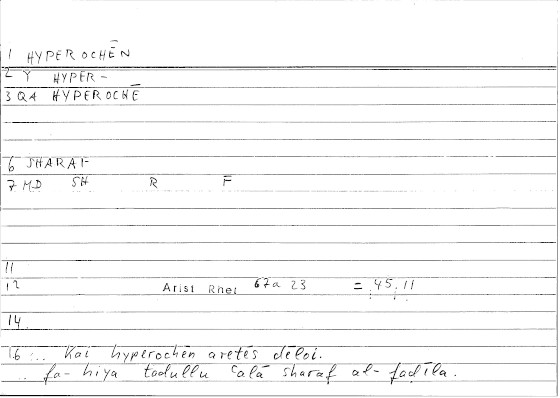 1 HYPEROCHĒN
2 Y HYPER-
3 QA HYPEROCHĒ
6 SHARAF
7 MD SH R F
11
12 Arist Rhet 67a 23 = 45,11
14
16 ... Kai hyperochēn aretēs dēloi.
.. fa-hiya tadullu ʿalā sharaf al-faḍīla.